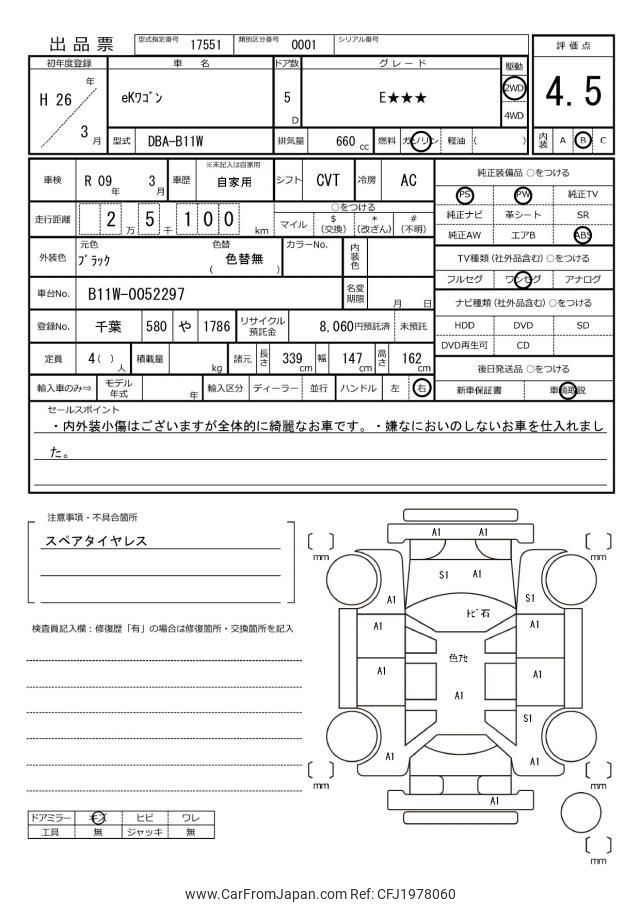 出品票
型式指定番号 17551 類別区分番号 0001 シリアル番号
評価点
4.5
内装 A B C
初年度登録 車名 ドア数 グレード 駆動
H 26 年 3 月
eKワゴン
5 D
E★★★
2WD
4WD
型式 DBA-B11W 排気量 660 cc 燃料 ガソリン 軽油 ( )
車検 R 09 年 3 月 車歴 ※未記入は自家用 自家用 シフト CVT 冷房 AC
走行距離 2 万 5 千 1 0 0 km
○をつける
マイル $ (交換) * (改ざん) # (不明)
外装色 元色 ブラック 色替 ( 色替無 ) カラーNo. 内装色
車台No. B11W-0052297 名変期限 月 日
登録No. 千葉 580 や 1786 リサイクル預託金 8,060円預託済 未預託
定員 4( ) 人 積載量 kg 諸元 長さ 339 cm 幅 147 cm 高さ 162 cm
輸入車のみ⇒ モデル年式 年 輸入区分 ディーラー 並行 ハンドル 左 右
純正装備品 ○をつける
PS PW 純正TV
純正ナビ 革シート SR
純正AW エアB ABS
TV種類(社外品含む)○をつける
フルセグ ワンセグ アナログ
ナビ種類(社外品含む)○をつける
HDD DVD SD
DVD再生可 CD
後日発送品 ○をつける
新車保証書 車輌取説
セールスポイント
・内外装小傷はございますが全体的に綺麗なお車です。・嫌なにおいのしないお車を仕入れまし
た。
注意事項・不具合箇所
スペアタイヤレス
検査員記入欄：修復歴「有」の場合は修復箇所・交換箇所を記入
ドアミラー キズ ヒビ ワレ
工具 無 ジャッキ 無
A1 A1
mm
mm
S1 A1
A1
S1
トビ石
A1
A1
色アセ
A1
A1
A1
S1
A1
A1
mm
mm
A1
mm
www.CarFromJapan.com Ref: CFJ1978060